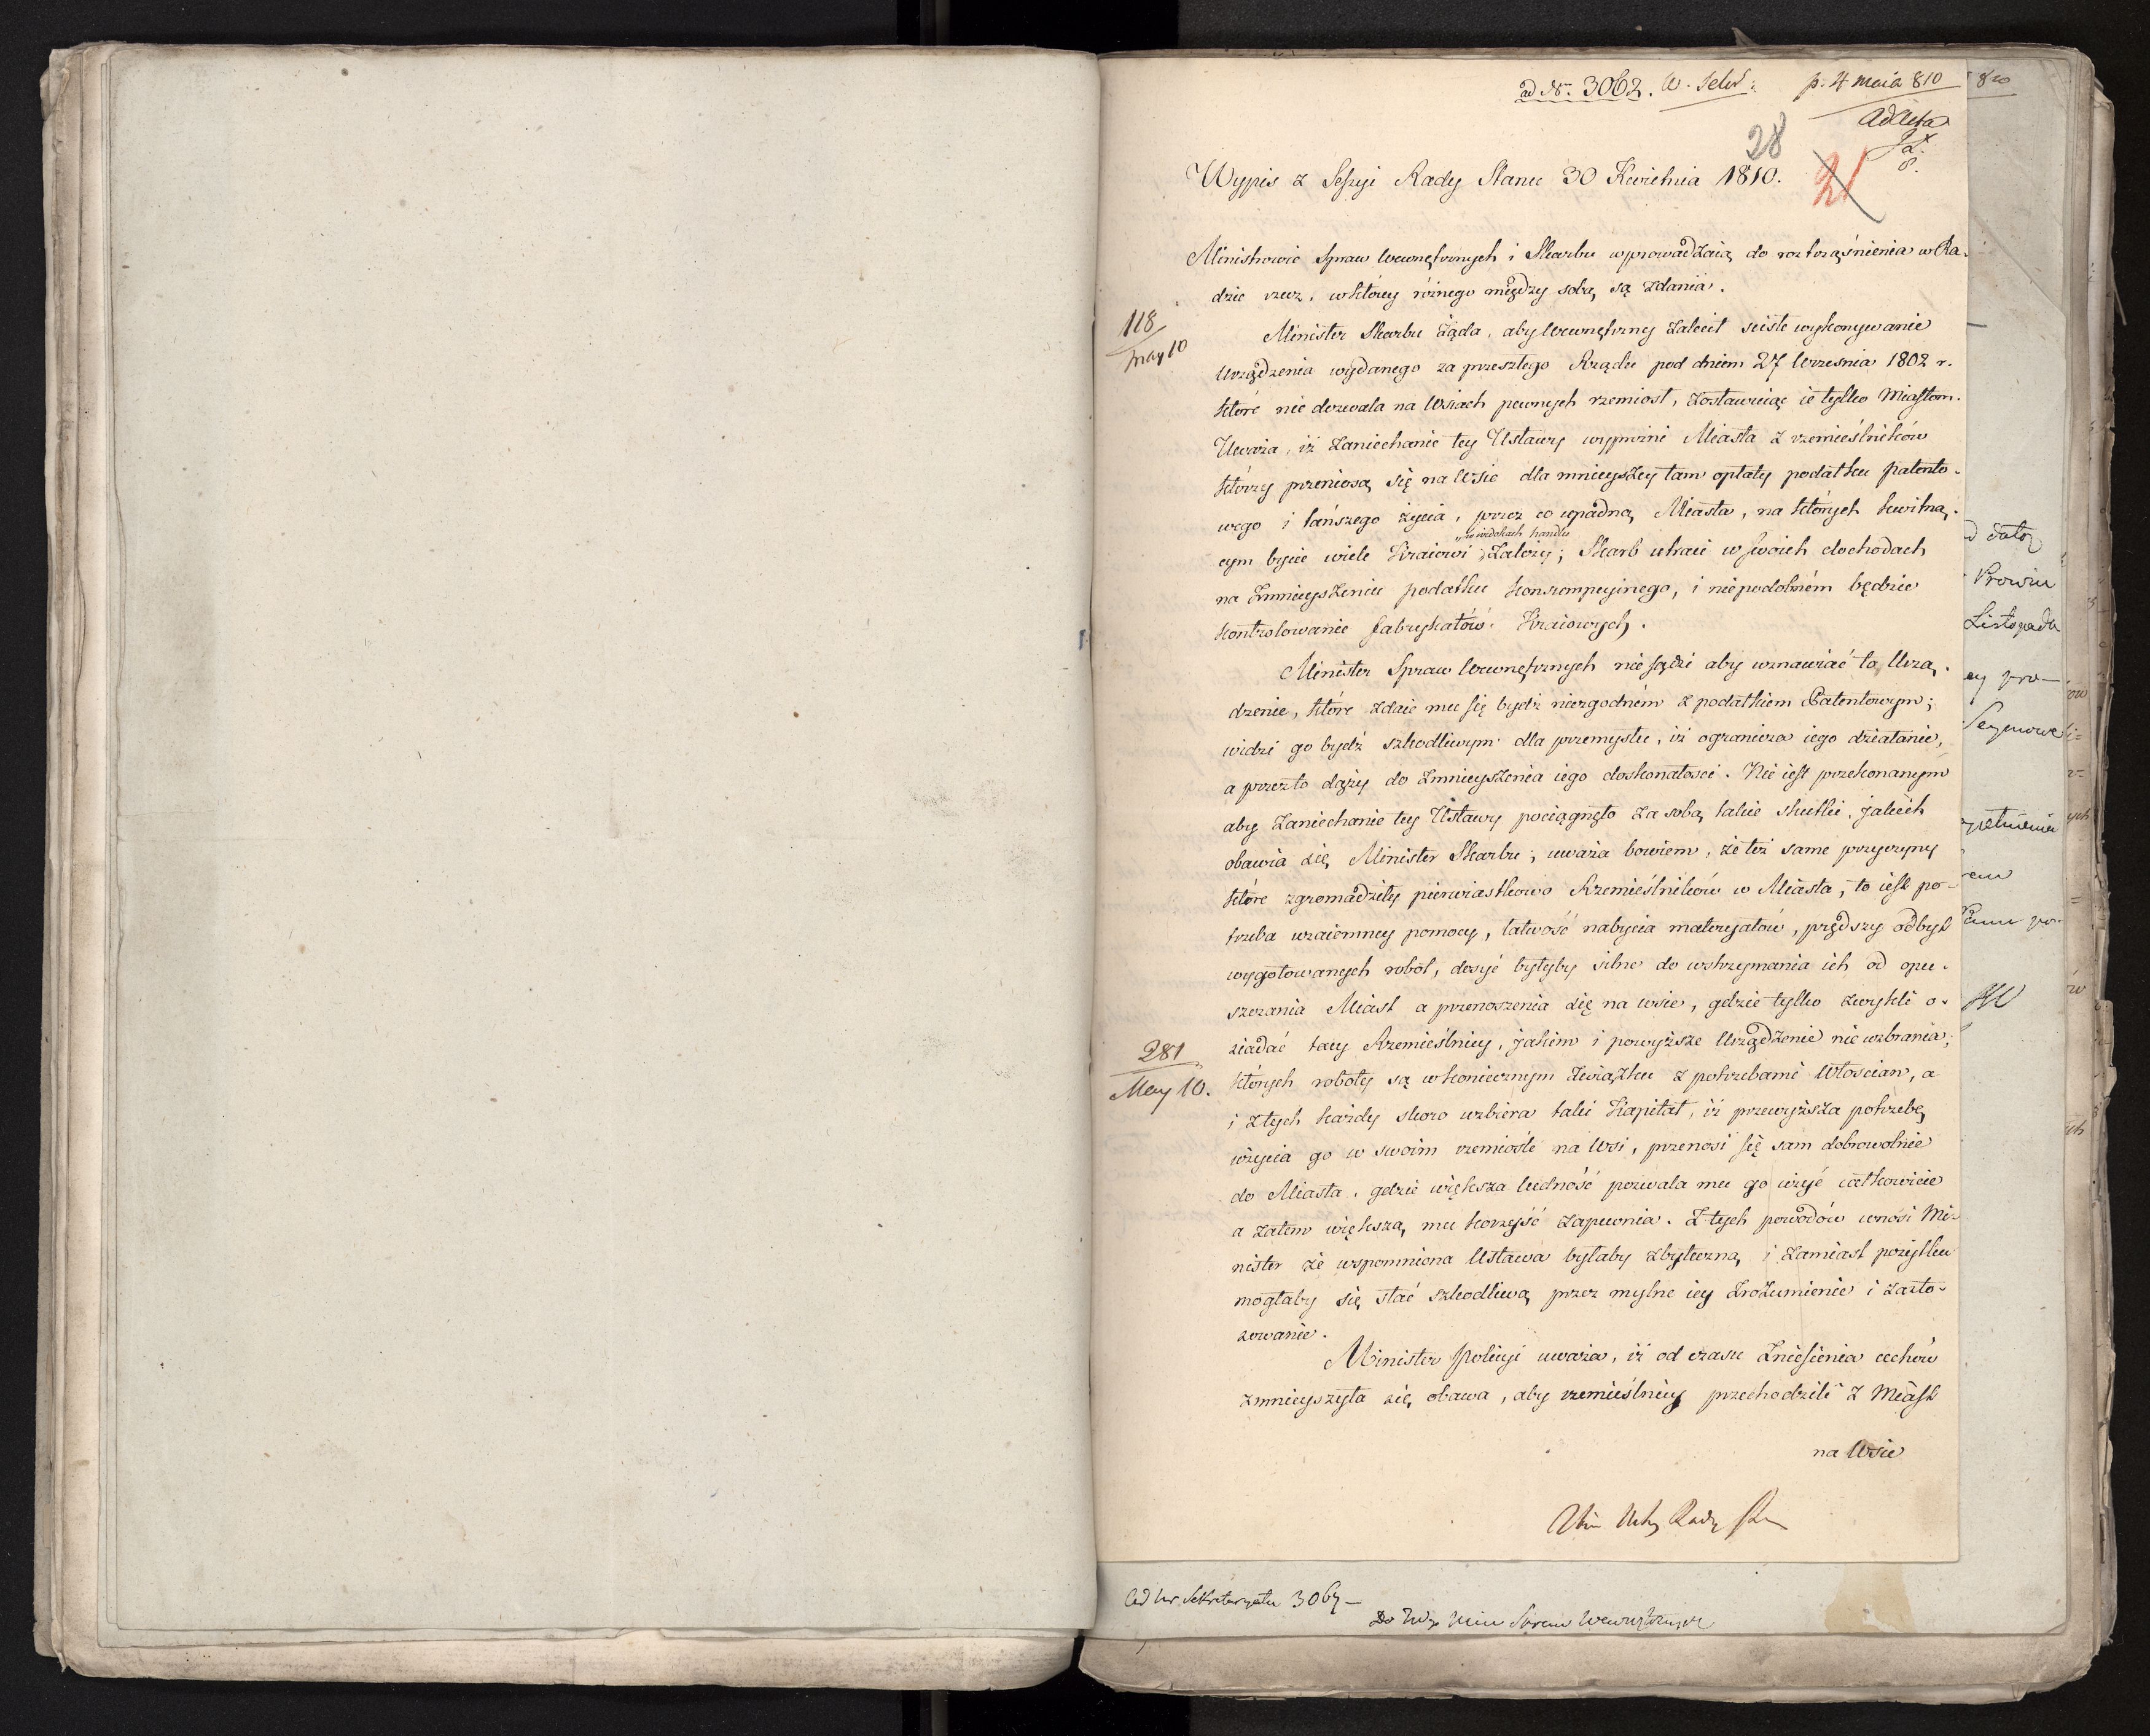 ad Nr. 3062. W. Sekr: p. 4 maia 810
ad Acta
28
21
Wypis z Sessyi Rady Stanu 30 Kwietnia 1810.
Ministrowie Spraw Wewnętrznych i Skarbu wprowadzaią do roztrząśnienia w Ra-
dzie rzecz, w którey różnego między sobą są zdania.
118
may 10
Minister Skarbu żąda, aby Wewnętrzny zalecił sciste wykonywanie
Urządzenia wydanego za przeszłego Rządu pod dniem 27 Wrzesnia 1802 r.
które nie dozwala na Wsiach pewnych rzemiosł, zostawuiąc ie tylko Miastom.
Uważa, iż zaniechanie tey Ustawy wyprożni Miasta z rzemieślników
którzy przeniosą się na Wsie dla mnieyszey tam opłaty podatku patento-
wego i tańszego życia, przez co upadną Miasta, na których kwitną-
„w widokach handlu
cym bycie wiele Kraiowi zależy; Skarb utraci w swoich dochodach
na zmnieyszeniu podatku konsumpcyinego, i niepodobném będzie
kontrolowanie fabrykatów Kraiowych.
Minister Spraw Wewnętrznych nie sądzi aby wznawiać to Urzą-
dzenie, które zdaie mu się bydź niezgodném z podatkiem Patentowym;
widzi go bydź szkodliwym dla przemysłu, iż ogranicza iego działanie,
a przezto dąży do zmnieyszenia iego doskonałosci. Nie iest przekonanym
aby zaniechanie tey Ustawy pociągnęło za sobą takie skutki, jakich
obawia się Minister Skarbu; uważa bowiem, że też same przyczyny
które zgromadziły pierwiastkowo Rzemieślników w Miasta, to iest po-
trzeba wzaiemney pomocy, łatwość nabycia materyałów, prędszy odbyt
wygotowanych robót, dosyć byłyby silne do wstrzymania ich od opu-
szczania Miast a przenoszenia się na wsie, gdzie tylko zwykli o-
281
May 10.
siadać tacy Rzemieślnicy, jakim i powyższe Urządzenie nie wzbrania;
których roboty są w koniecznym związku z potrzebami Włoscian, a
i z tych każdy skoro uzbiera taki Kapitał, iż przewyższa potrzebę
użycia go w swoim rzemiośle na Wsi, przenosi się sam dobrowolnie
do Miasta, gdzie większa ludność pozwala mu go użyć całkowicie
a zatem większą mu korzyść zapewnia. Z tych powodów wnosi Mi-
nister że wspomniona Ustawa byłaby zbyteczną, i zamiast pożytku
mogłaby się stać szkodliwą przez mylne iey zrozumienie i zasto-
sowanie.
Minister Policyi uważa, iż od czasu zniesienia cechów
zmnieyszyła się obawa, aby rzemieślnicy przechodzili z Miast
na Wsie
Ad Nr Sekretaryatu 3067 –
Do Min Spraw Wewnętrznych
Prowin
Listopada
ey pro–
Seymowe